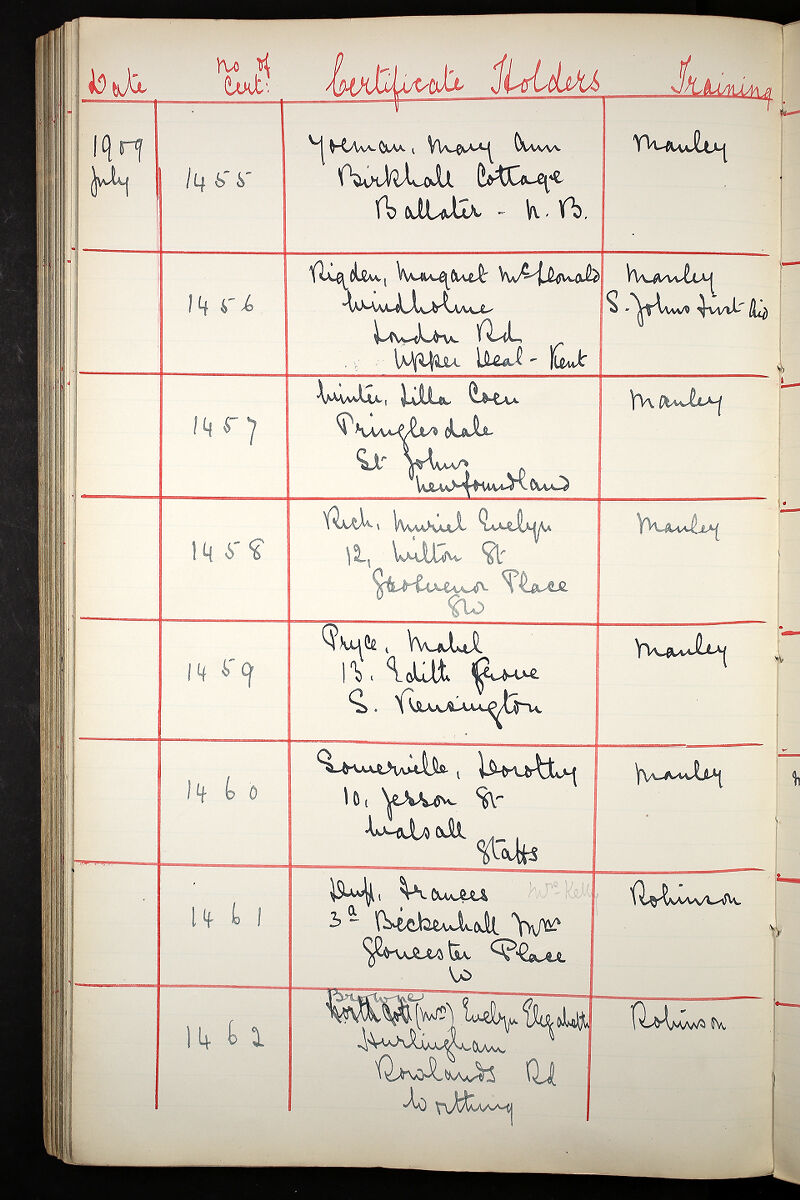 Date No of Cert: Certificate Holders Training
1909 Yoeman, Mary Ann Manley
July 1455 Birkhall Cottage
Ballater - N. B.
Rigden, Margaret McDonald Manley
1456 Windholme S. Johns First Aid
London Rd
Upper Deal - Kent
Winter, Lilla Coen Manley
1457 Pringlesdale
St Johns
Newfoundland
Rich, Muriel Evelyn Manley
1458 12, Wilton St
Grosvenor Place
SW
Pryce, Mabel Manley
1459 13. Edith Grove
S. Kensington
Somerville, Dorothy Manley
1460 10, Jesson St
Walsall
Staffs
Duff, Frances Mrs Kelly Robinson
1461 3a Bickenhall Mns
Gloucester Place
W
Browne
Northcott (Mrs) Evelyn Elizabeth Robinson
1462 Hurlingham
Rowlands Rd
Worthing